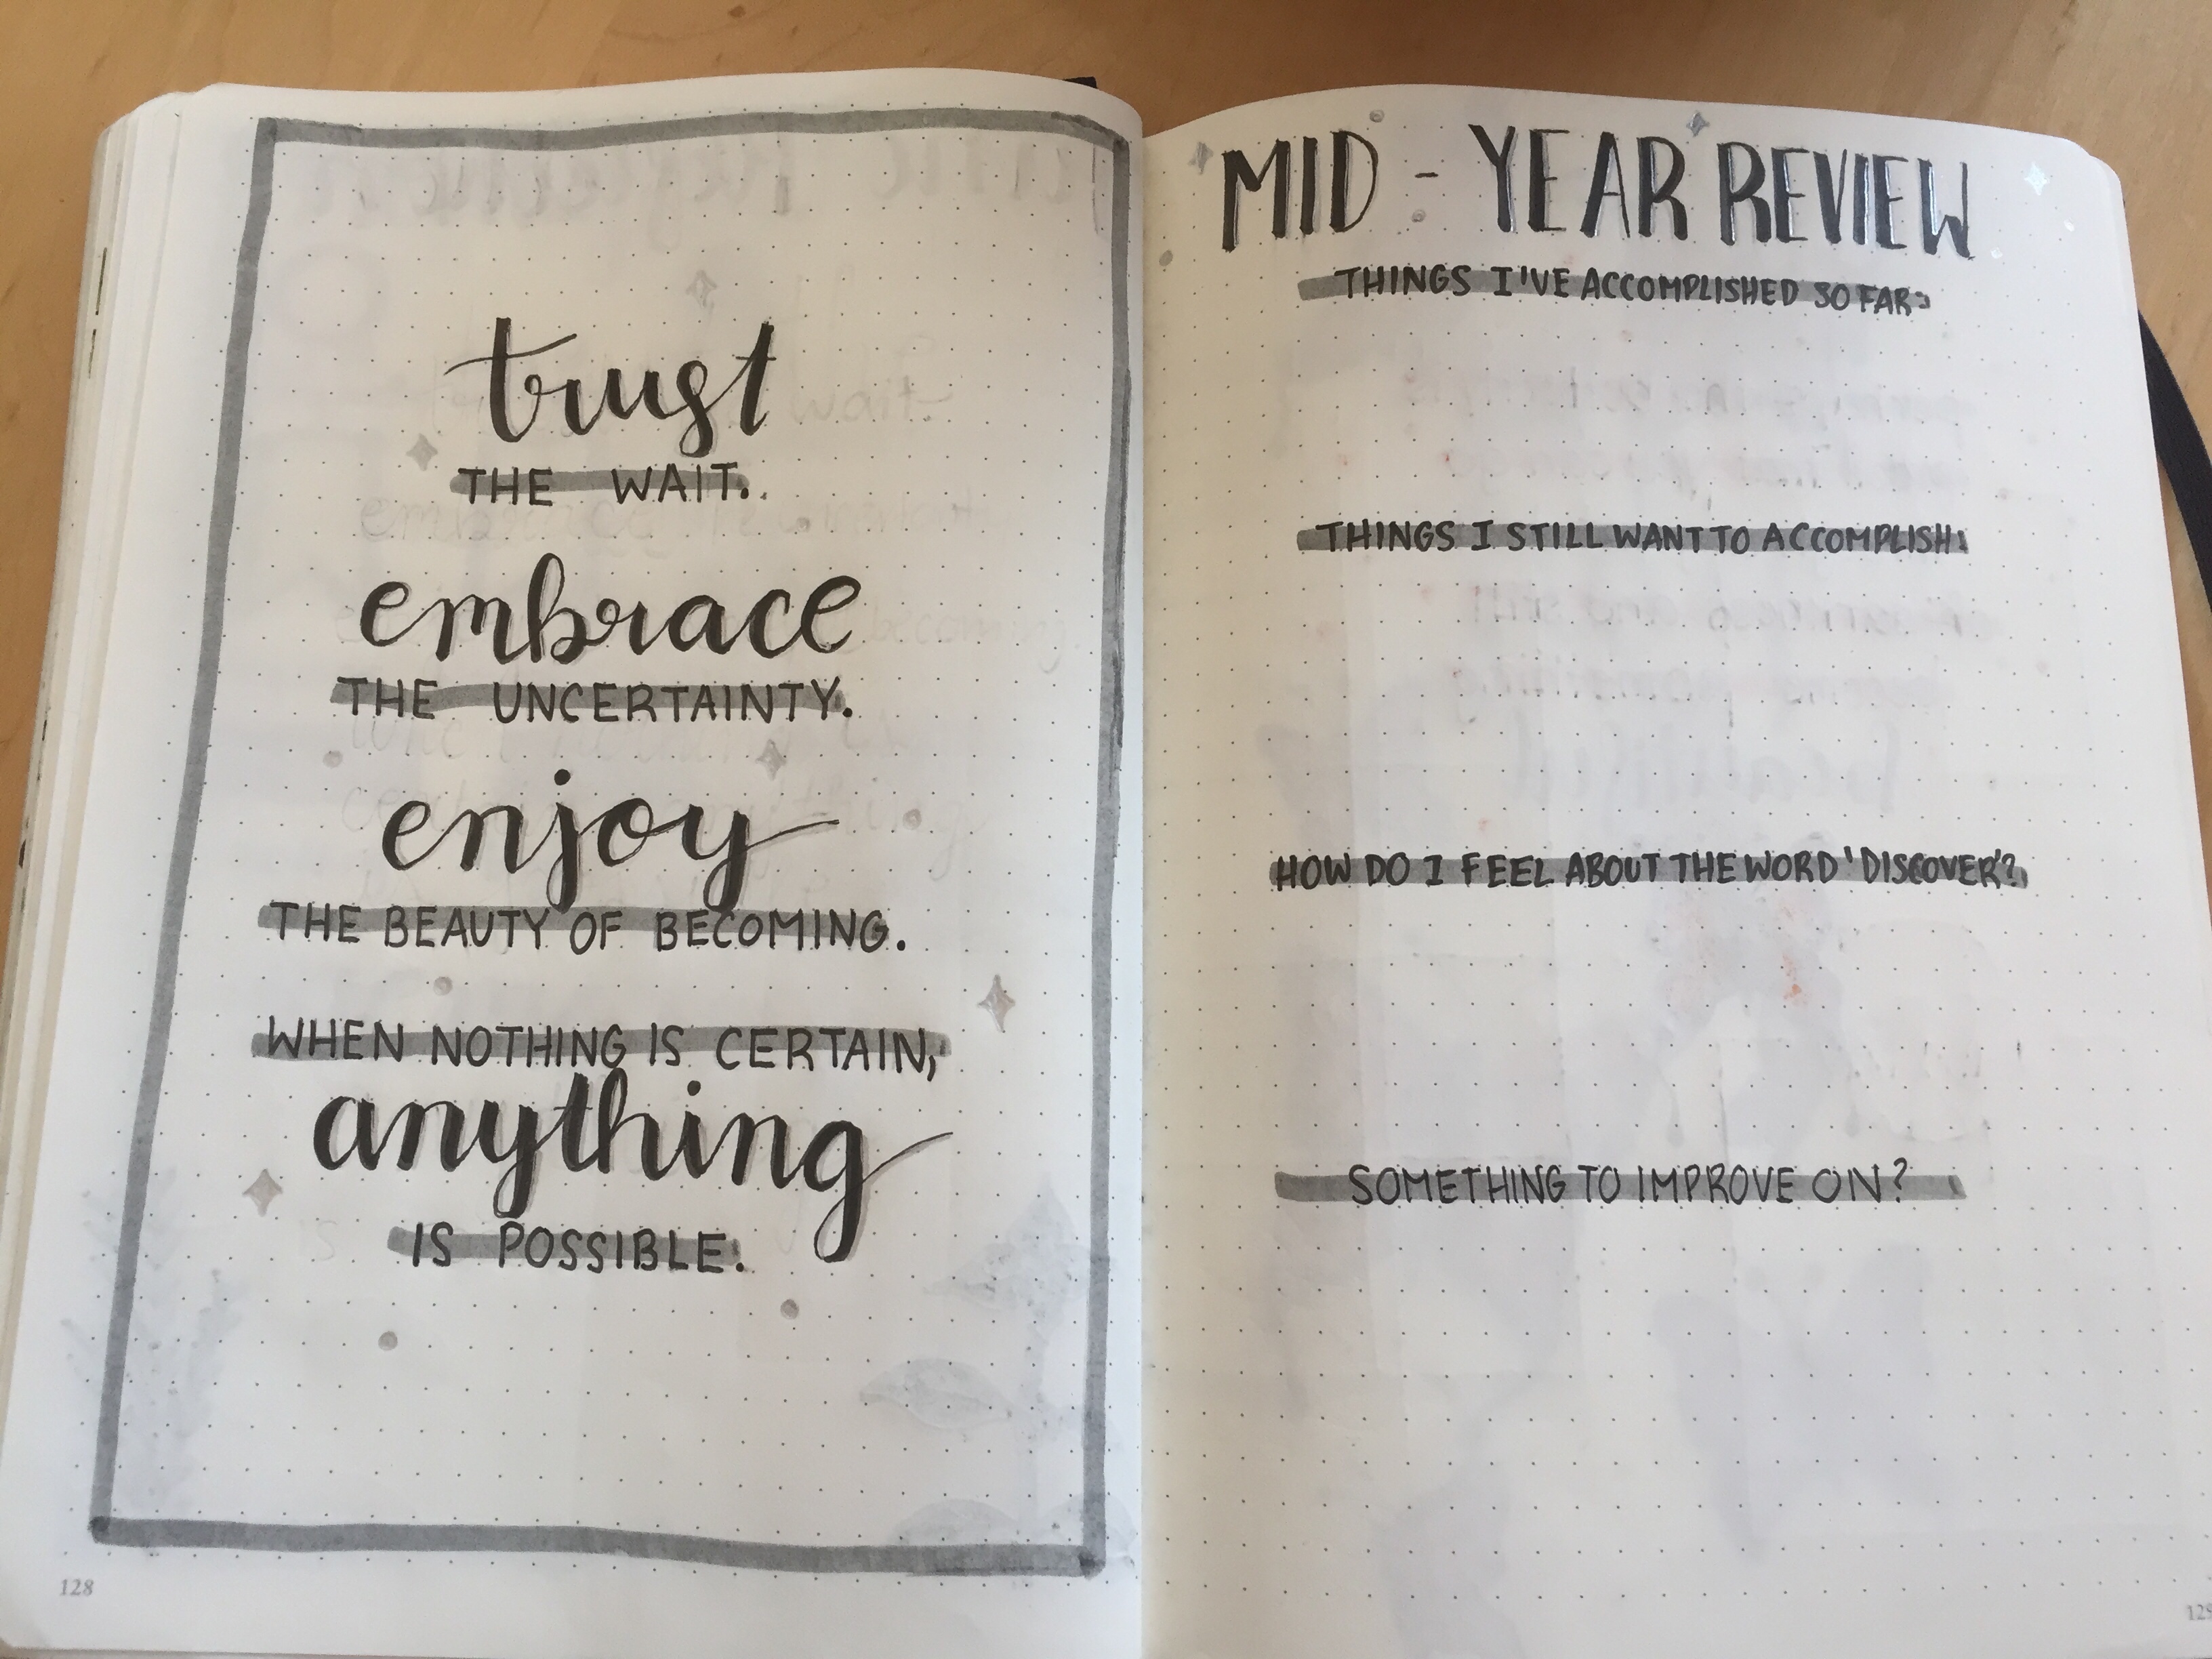 trust
THE WAIT.
embrace
THE UNCERTAINTY.
enjoy
THE BEAUTY OF BECOMING.
WHEN NOTHING IS CERTAIN,
anything
IS POSSIBLE.
128
MID - YEAR REVIEW
THINGS I'VE ACCOMPLISHED SO FAR:
THINGS I STILL WANT TO ACCOMPLISH:
HOW DO I FEEL ABOUT THE WORD 'DISCOVER'?
SOMETHING TO IMPROVE ON?